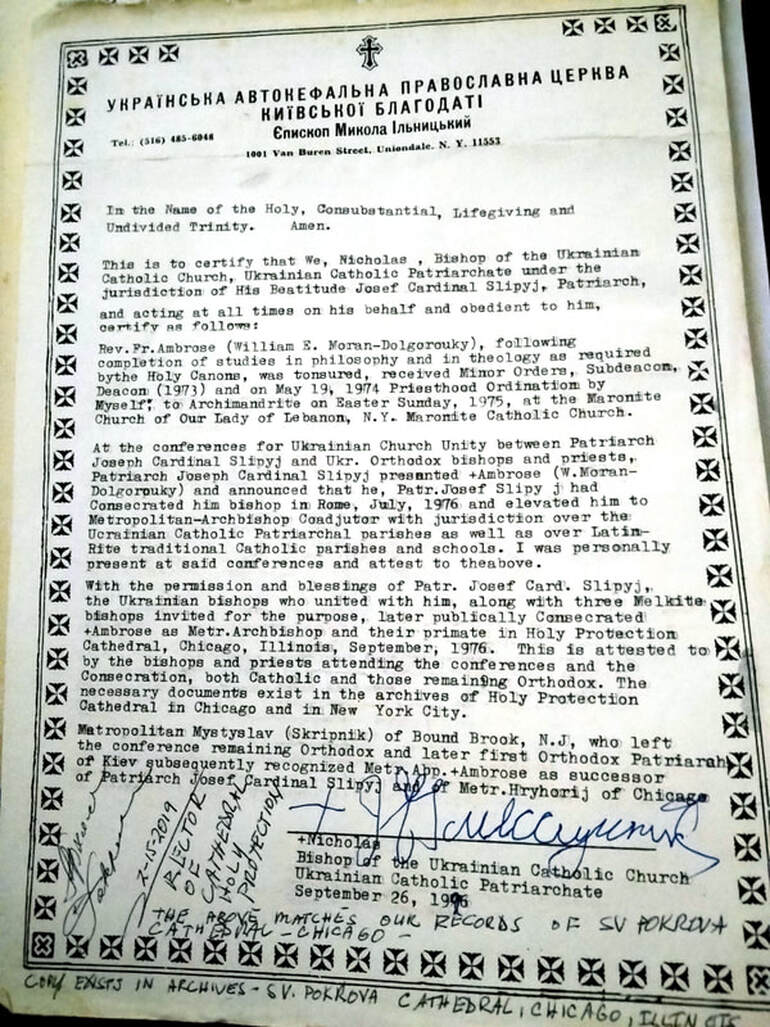 УКРАЇНСЬКА АВТОКЕФАЛЬНА ПРАВОСЛАВНА ЦЕРКВА
КИЇВСЬКОЇ БЛАГОДАТІ
Єпископ Микола Ільницький
Tel.: (516) 485-6048
1001 Van Buren Street, Uniondale, N. Y. 11553
In the Name of the Holy, Consubstantial, Lifegiving and
Undivided Trinity. Amen.
This is to certify that We, Nicholas , Bishop of the Ukrainian
Catholic Church, Ukrainian Catholic Patriarchate under the
jurisdiction of His Beatitude Josef Cardinal Slipyj, Patriarch,
and acting at all times on his behalf and obedient to him,
certify as follows:
Rev.Fr.Ambrose (William E. Moran-Dolgorouky), following
completion of studies in philosophy and in theology as required
bythe Holy Canons, was tonsured, received Minor Orders, Subdeacon,
Deacon (1973) and on May 19, 1974 Priesthood Ordination by
Myself; to Archimandrite on Easter Sunday, 1975, at the Maronite
Church of Our Lady of Lebanon, N.Y. Maronite Catholic Church.
At the conferences for Ukrainian Church Unity between Patriarch
Joseph Cardinal Slipyj and Ukr. Orthodox bishops and priests,
Patriarch Joseph Cardinal Slipyj presented +Ambrose (W.Moran-
Dolgorouky) and announced that he, Patr.Josef Slipy j had
Consecrated him bishop in Rome, July, 1976 and elevated him to
Metropolitan-Archbishop Coadjutor with jurisdiction over the
Ucrainian Catholic Patriarchal parishes as well as over Latin-
Rite traditional Catholic parishes and schools. I was personally
present at said conferences and attest to theabove.
With the permission and blessings of Patr. Josef Card. Slipyj,
the Ukrainian bishops who united with him, along with three Melkite
bishops invited for the purpose, later publically Consecrated
+Ambrose as Metr.Archbishop and their primate in Holy Protection
Cathedral, Chicago, Illinois, September, 1976. This is attested to
by the bishops and priests attending the conferences and the
Consecration, both Catholic and those remaining Orthodox. The
necessary documents exist in the archives of Holy Protection
Cathedral in Chicago and in New York City.
Matropolitan Mystyslav (Skripnik) of Bound Brook, N.J, who left
the conference remaining Orthodox and later first Orthodox Patriarah
of Kiev subsequently recognized Metr.App.+Ambrose as successor
of Patriarch Josef Cardinal Slipyj and of Metr.Hryhorij of Chicago
+Nicholas
Bishop of the Ukrainian Catholic Church
Ukrainian Catholic Patriarchate
September 26,
2-15-2019
RECTOR
OF
CATHEDRAL
HOLY
PROTECTION
THE ABOVE MATCHES OUR RECORDS OF SV POKROVA
CATHEDRAL - CHICAGO -
COPY EXISTS IN ARCHIVES - SV. POKROVA CATHEDRAL, CHICAGO, ILLINOIS